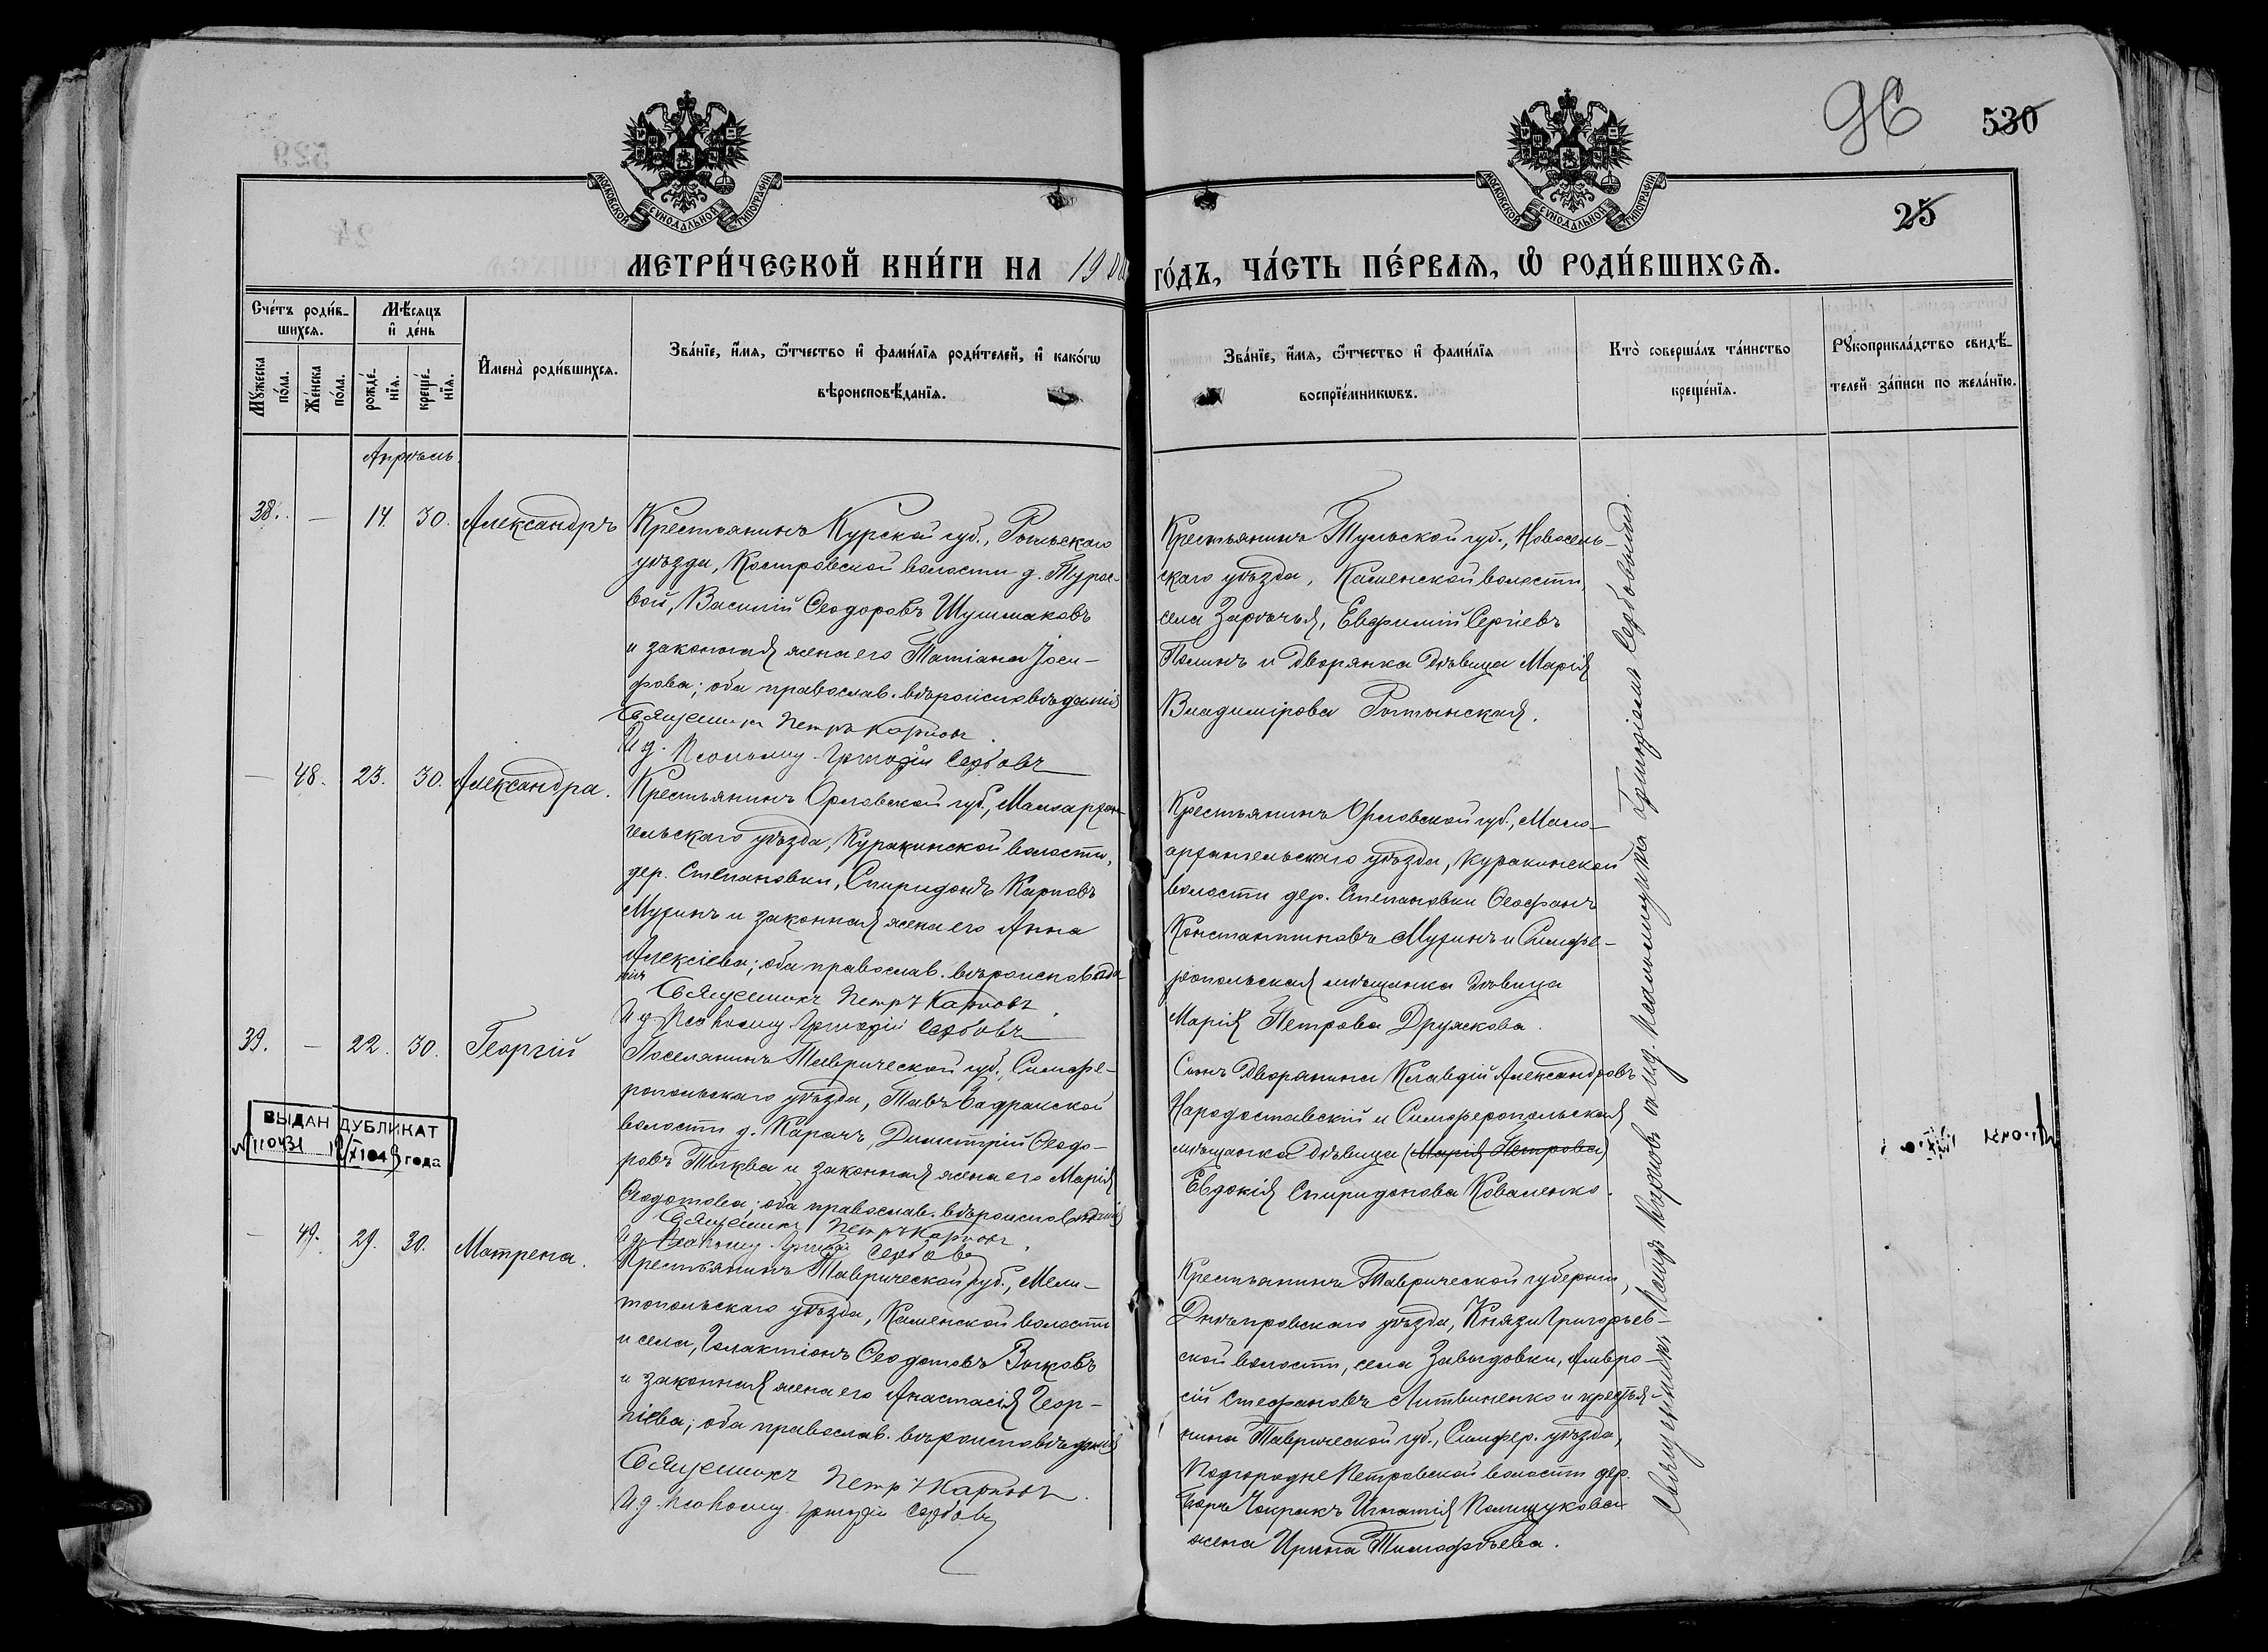 530
25
МОСКОВСКОЙ СѴНОДАЛЬНОЙ ТИПОГРАФІИ
МОСКОВСКОЙ СѴНОДАЛЬНОЙ ТИПОГРАФІИ
МЕТРИ́ЧЕСКОЙ КНИ́ГИ НА 1900 ГО́ДЪ, ЧА́СТЬ ПЕ́РВАѦ, Ѡ҆ РОДИ́ВШИХСѦ.
Сче́тъ роди́в-
шихсѧ.
Мѣ́сѧцъ
и҆ де́нь
Мꙋ́жеска по́ла.
Же́нска по́ла.
рожде́-
нїѧ.
креще́-
нїѧ.
И҆мена̀ роди́вшихсѧ.
Зва́нїе, и҆́мѧ, ѻ҆́тчество и҆ фами́лїѧ роди́телей, и҆ како́гѡ
вѣроисповѣ́данїѧ.
Зва́нїе, и҆́мѧ, ѻ҆́тчество и҆ фами́лїѧ
воспрїе́мникѡвъ.
Кто̀ соверша́лъ та́инство
креще́нїѧ.
Рꙋкоприкла́дство свидѣ́-
телей за́писи по жела́нїю.
Апрѣль.
38. — 14. 30. Александръ
Крестьянинъ Курской губ., Рыльскаго
уѣзда, Костровской волости д. Туро-
вой, Василій Ѳеодоровъ Шушмаковъ
и законная жена его Татіана Іоси-
фова; оба православ. вѣроисповѣданія
Священникъ Петръ Карповъ.
И д. Псаломщ. Григорій Сербовъ
Крестьянинъ Тульской губ., Новосиль-
скаго уѣзда, Каменской волости,
села Зарѣчья, Евфимій Сергіевъ
Полинъ и Дворянка дѣвица Марія
Владимірова Ротынская.
— 48. 23. 30. Александра.
Крестьянинъ Орловской губ., Малоархан-
гельскаго уѣзда, Куракинской волости,
дер. Степановки, Спиридонъ Карповъ
Мухинъ и законная жена его Анна
Алексіева; оба православ. вѣроисповѣда-
нія
Священникъ Петръ Карповъ.
И д. Псаломщ. Григорій Сербовъ
Крестьянинъ Орловской губ., Мало-
архангельскаго уѣзда, Куракинской
волости дер. Степановки Ѳеофанъ
Константиновъ Мухинъ и Симфе-
ропольская мѣщанка дѣвица
Марія Петрова Дружкова.
39. — 22. 30. Георгій
Поселянинъ Таврической губ., Симфе-
ропольскаго уѣзда, Тавъ Бадракской
волости д. Карачъ, Димитрій Ѳеодо-
ровъ Тыква и законная жена его Марія
Ѳеодотова; оба православ. вѣроисповѣданія
Священникъ Петръ Карповъ.
И д. Псаломщ. Григорій Сербовъ
Сынъ Дворянина Клавдій Александровъ
Народоставскій и Симферопольская
мѣщанка дѣвица (Марія Петрова)
Евдокія Спиридонова Коваленко.
ВЫДАН ДУБЛИКАТ
№ 110431 года
— 49. 29. 30. Матрена.
Крестьянинъ Таврической губ., Мели-
топольскаго уѣзда, Каменской волости
и села, Галактіонъ Ѳеодотовъ Зыковъ
и законная жена его Анастасія Геор-
гіева; оба православ. вѣроисповѣданія
Священникъ Петръ Карповъ.
И д. Псаломщ. Григорій Сербовъ
Крестьянинъ Таврической губерніи,
Днѣпровскаго уѣзда, Князе Григорьев-
ской волости, села Завыдовки, Амвро-
сій Стефановъ Литвиненко и крестья-
нина Таврической губ., Симфер. уѣзда,
Подгородне Петровской волости дер.
Игнатія Полищукова
жена Ирина Тимофѣева.
Священникъ Петръ Карповъ и и.д. псаломщика Григоріемъ Сербовымъ.